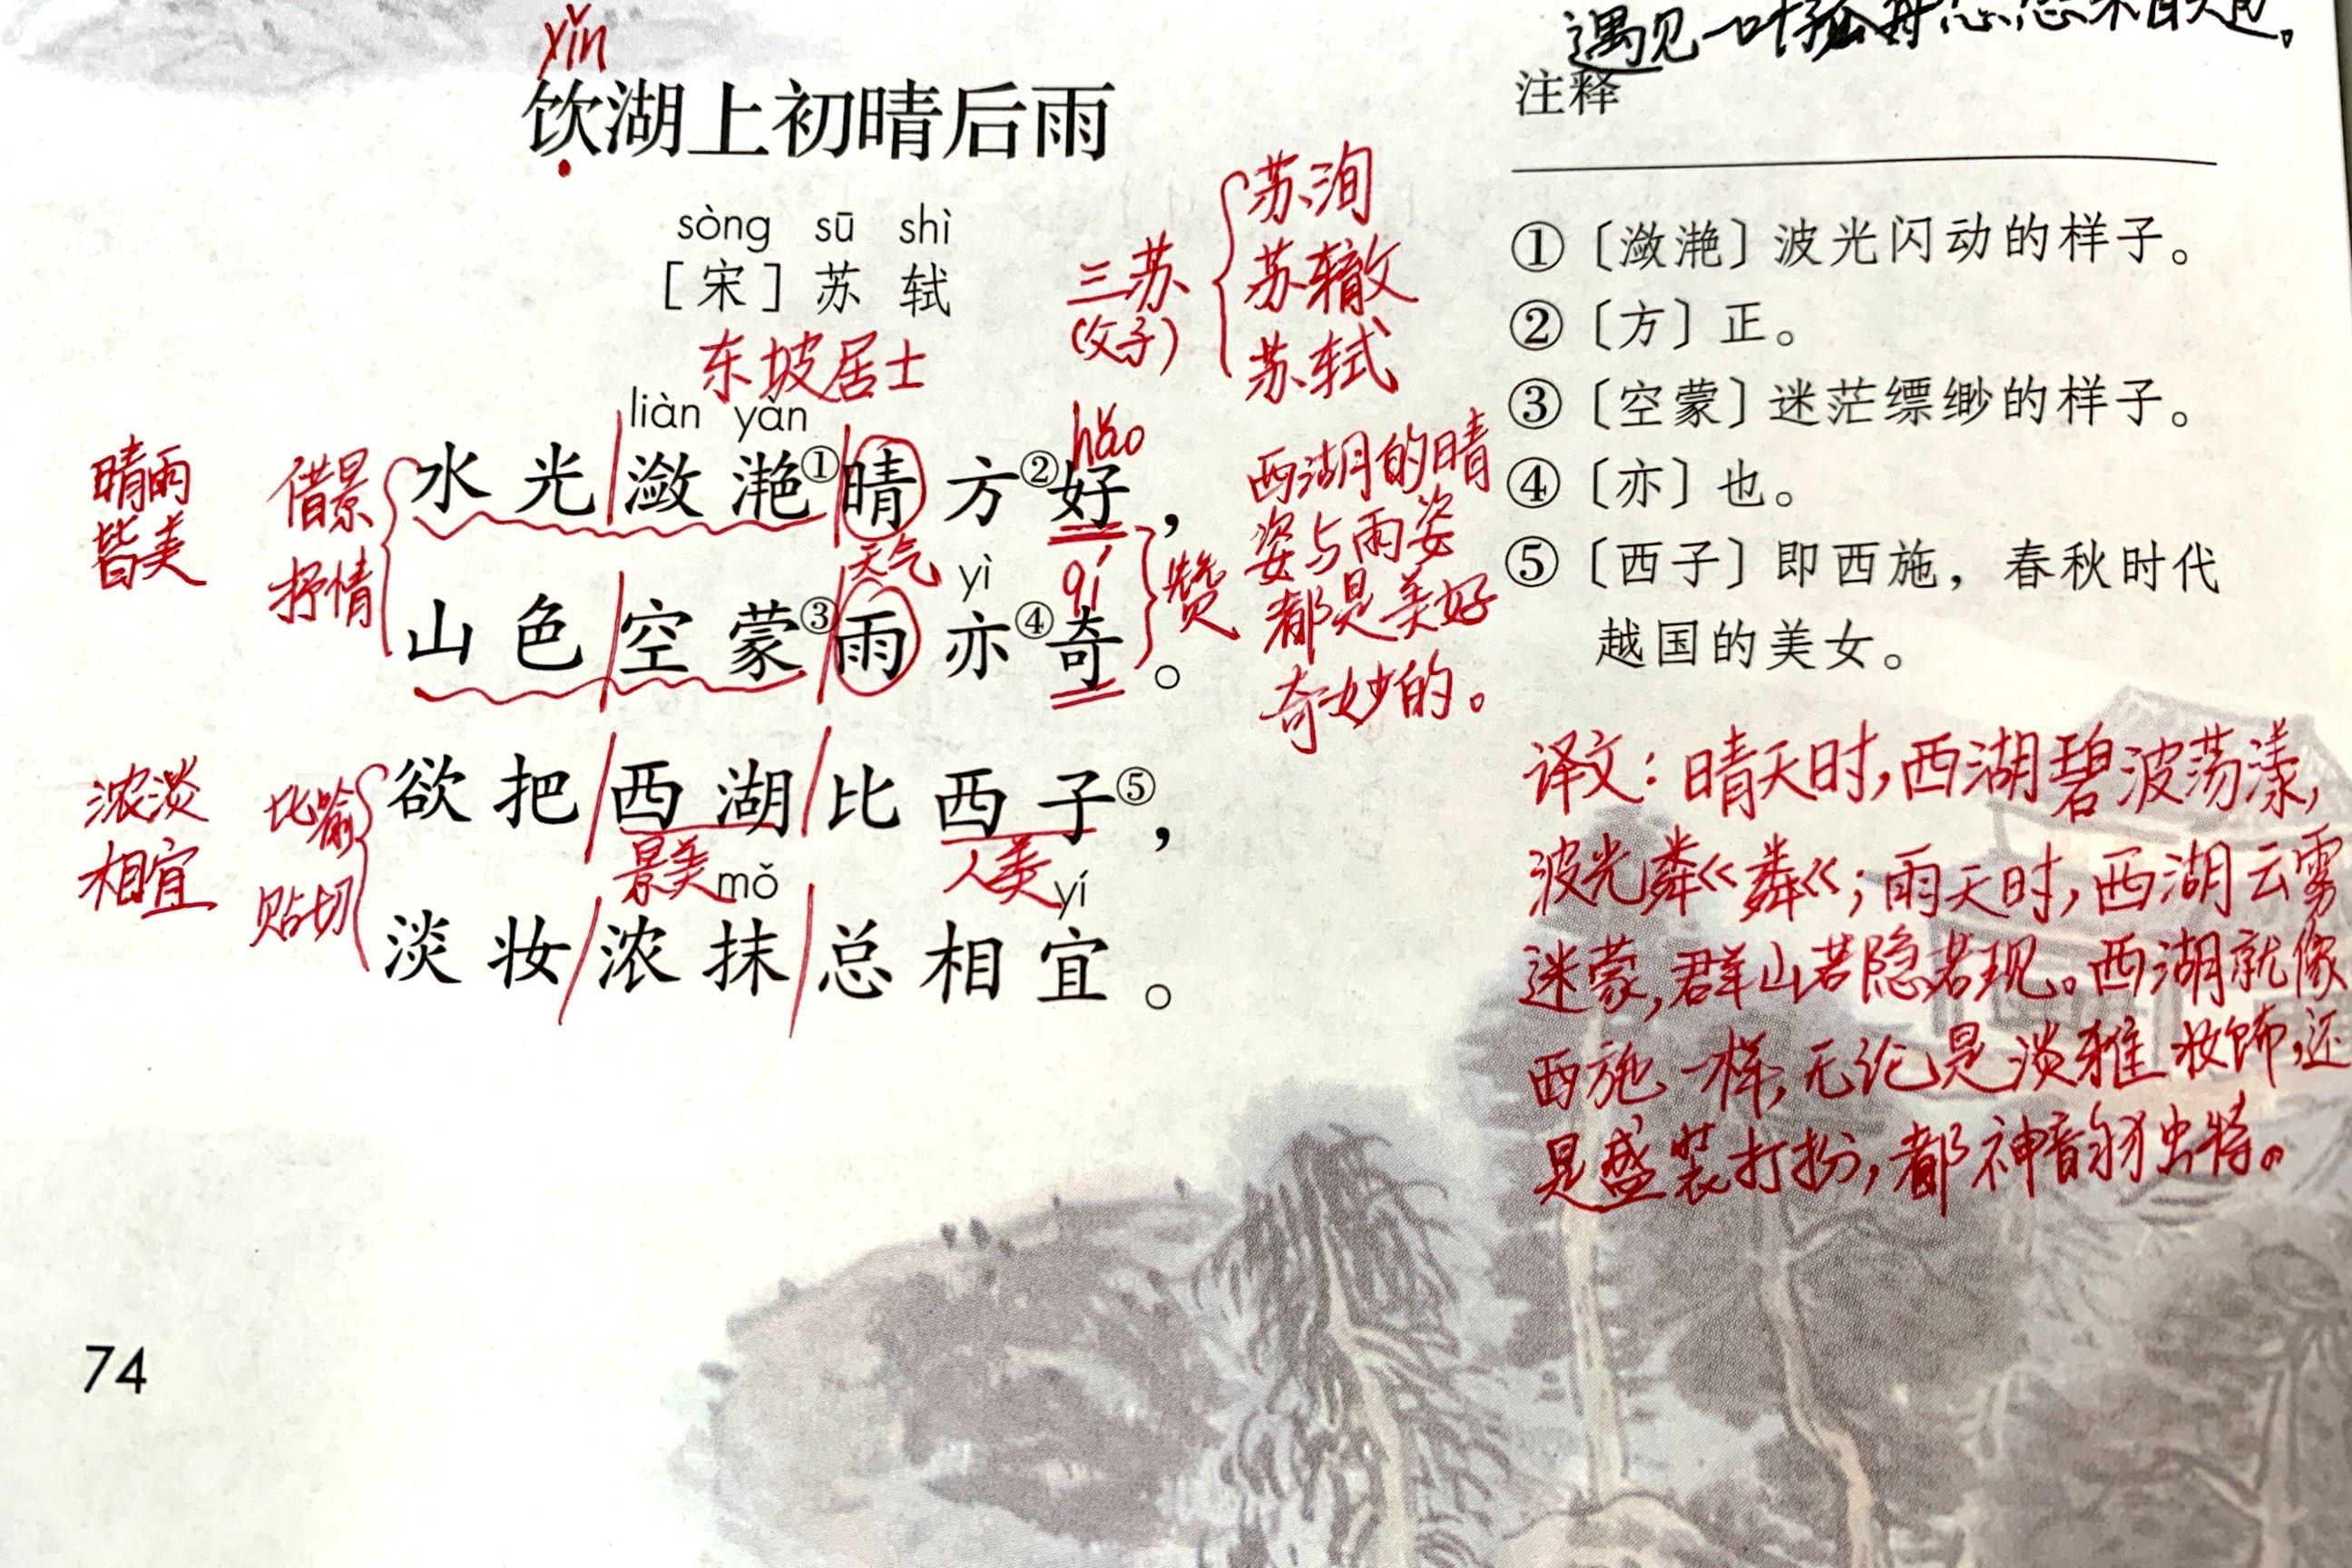 遇见一叶孤舟悠悠来
yǐn
饮湖上初晴后雨
sòng sū shì
[宋] 苏 轼
东坡居士
三苏
(父子)
苏洵
苏辙
苏轼
liàn yàn
hǎo
水光潋滟①晴方②好，
天气
yì
qí
山色空蒙③雨亦④奇。
晴雨
皆美
借景
抒情
赞
西湖的晴
姿与雨姿
都是美好
奇妙的。
欲把西湖比西子⑤，
景美
人美
mǒ
yí
淡妆浓抹总相宜。
浓淡
相宜
比喻
贴切
注释
①〔潋滟〕波光闪动的样子。
②〔方〕正。
③〔空蒙〕迷茫缥缈的样子。
④〔亦〕也。
⑤〔西子〕即西施，春秋时代
越国的美女。
译文：晴天时，西湖碧波荡漾，
波光粼粼；雨天时，西湖云雾
迷蒙，群山若隐若现。西湖就像
西施一样，无论是淡雅妆饰，还
是盛装打扮，都神韵独特。
74